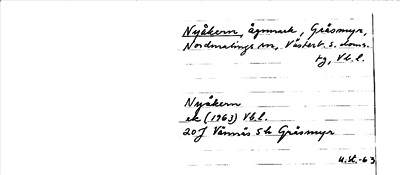 Nyåkern, ägomark, Gräsmyr,
Nordmalings sn, Västerb. s. doms.
tg, Vb. l.
Nyåkern
ek (1963) Vb.l.
20J Vännäs 5b Gräsmyr
U.H.-63